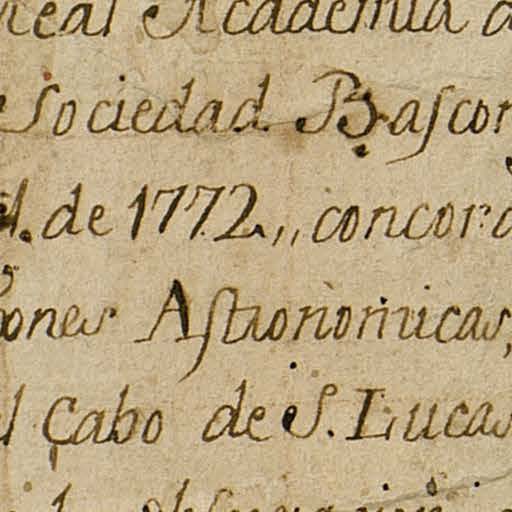 Real Academia d
Sociedad Bascon
d. de 1772,, concord
ones Astronomicas,
el Cabo de S. Lucas